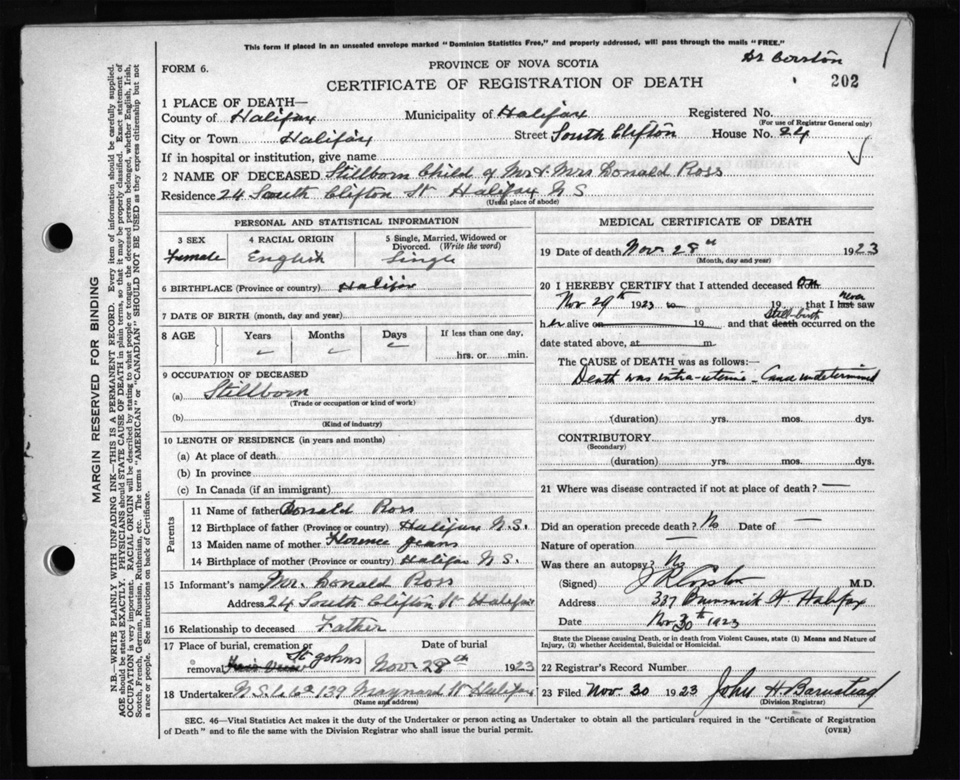 This form if placed in an unsealed envelope marked "Dominion Statistics Free," and properly addressed, will pass through the mails "FREE."
FORM 6.
PROVINCE OF NOVA SCOTIA
CERTIFICATE OF REGISTRATION OF DEATH
202
1 PLACE OF DEATH—
County of Halifax Municipality of Halifax Registered No.
(For use of Registrar General only)
City or Town Halifax Street South Clifton House No. 24
If in hospital or institution, give name
2 NAME OF DECEASED Stillborn Child of Mr & Mrs Donald Ross
Residence 24 South Clifton St Halifax N S
(Usual place of abode)
PERSONAL AND STATISTICAL INFORMATION
3 SEX 4 RACIAL ORIGIN 5 Single, Married, Widowed or Divorced. (Write the word)
Female English Single
6 BIRTHPLACE (Province or country) Halifax
7 DATE OF BIRTH (month, day and year)
8 AGE Years Months Days If less than one day,
hrs. or min.
9 OCCUPATION OF DECEASED
(a) Stillborn
(Trade or occupation or kind of work)
(b)
(Kind of industry)
10 LENGTH OF RESIDENCE (in years and months)
(a) At place of death
(b) In province
(c) In Canada (if an immigrant)
Parents
11 Name of father Donald Ross
12 Birthplace of father (Province or country) Halifax N.S.
13 Maiden name of mother Florence Jeans
14 Birthplace of mother (Province or country) Halifax N S.
15 Informant's name Mr. Donald Ross
Address 24 South Clifton St Halifax
16 Relationship to deceased Father
17 Place of burial, cremation or Date of burial
removal St Johns Nov 28th 1923
18 Undertaker N.S. Co 139 Maynard St Halifax
(Name and address)
MEDICAL CERTIFICATE OF DEATH
19 Date of death Nov 28th 1923
(Month, day and year)
20 I HEREBY CERTIFY that I attended deceased
Nov 29th 1923 to 19 that I never last saw
her alive on 19 and that Still-birth death occurred on the
date stated above, at m
The CAUSE of DEATH was as follows:
Death was intra-uterine - undetermined
(duration) yrs. mos. dys.
CONTRIBUTORY
(Secondary)
(duration) yrs. mos. dys.
21 Where was disease contracted if not at place of death? —
Did an operation precede death? No Date of —
Nature of operation —
Was there an autopsy? No
(Signed) M.D.
Address 337 Brunswick St Halifax
Date Nov 30th 1923
State the Disease causing Death, or in death from Violent Causes, state (1) Means and Nature of
Injury, (2) whether Accidental, Suicidal or Homicidal.
22 Registrar's Record Number
23 Filed Nov. 30 1923 John H. Barnstead
(Division Registrar)
SEC. 46—Vital Statistics Act makes it the duty of the Undertaker or person acting as Undertaker to obtain all the particulars required in the "Certificate of Registration
of Death" and to file the same with the Division Registrar who shall issue the burial permit.
(OVER)
MARGIN RESERVED FOR BINDING
N.B.—WRITE PLAINLY WITH UNFADING INK—THIS IS A PERMANENT RECORD. Every item of information should be carefully supplied.
AGE should be stated EXACTLY. PHYSICIANS should STATE CAUSE OF DEATH in plain terms, so that it may be properly classified. Exact statement of
OCCUPATION is very important. RACIAL ORIGIN will be described by stating to what people or tongue the deceased person belonged, whether English, Irish,
Scotch, French, German, Russian, Ruthenian, etc. The terms "AMERICAN" or "CANADIAN" SHOULD NOT BE USED as they express citizenship but not
a race or people. See instructions on back of Certificate.